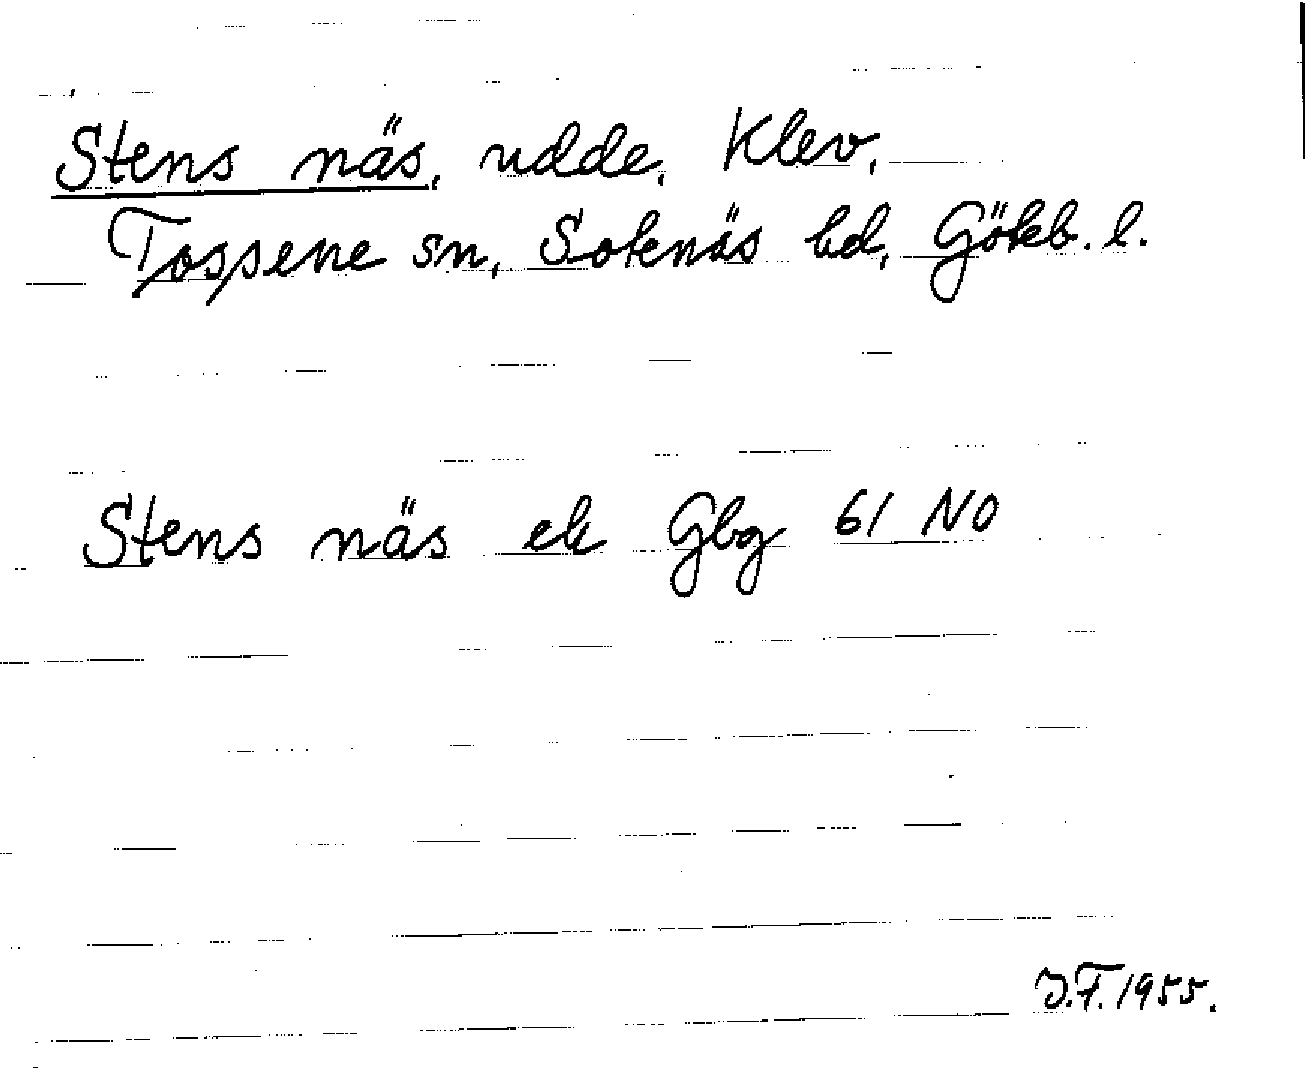 Stens näs, udde, Klev,
Tossene sn, Sotenäs hd, Göteb. l.
Stens näs ek Gbg 61 NO
J.F. 1955.